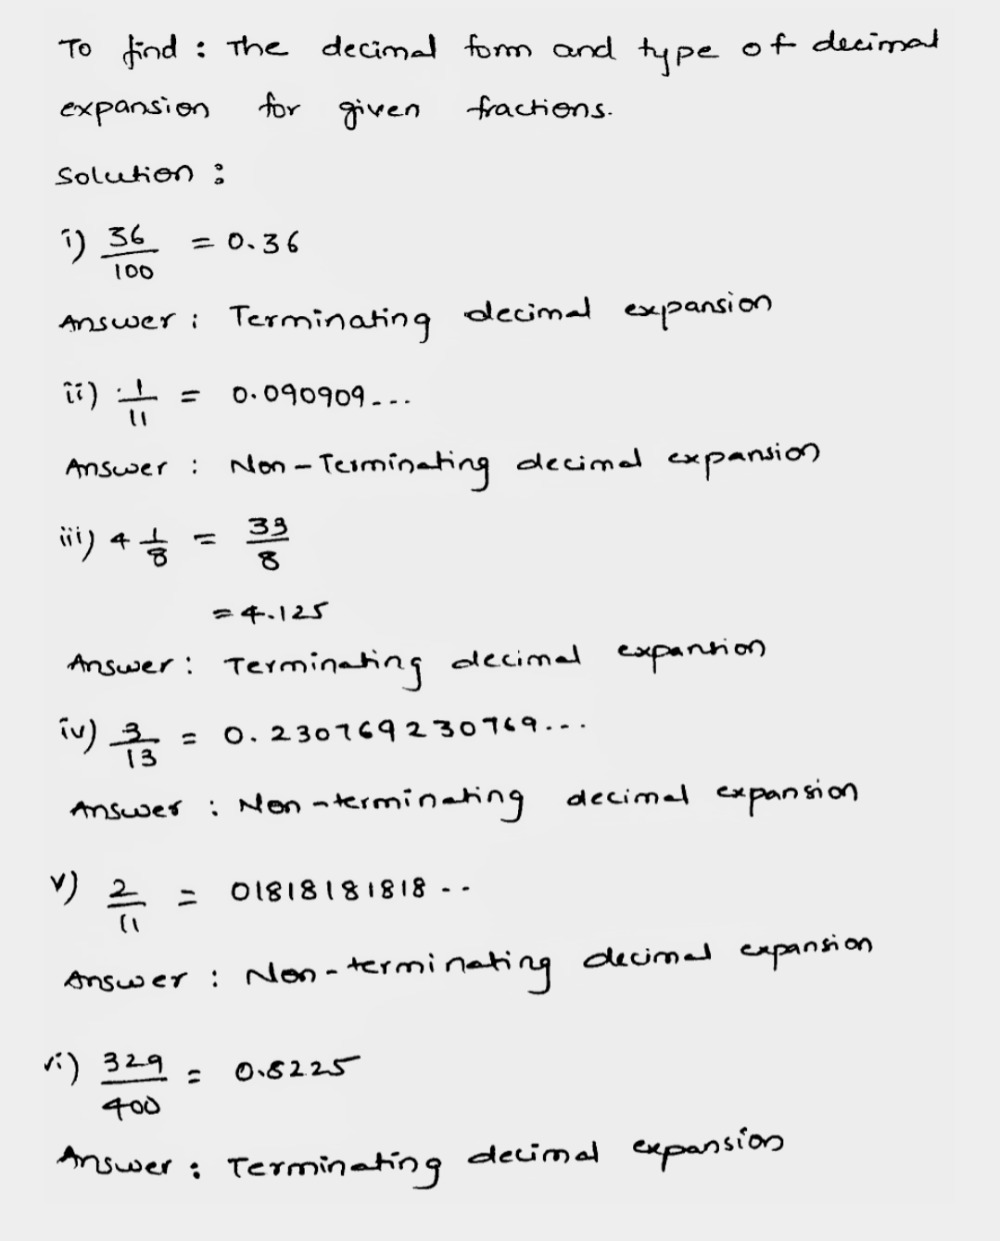 To find : The decimal form and type of decimal
expansion for given fractions.
Solution :
i) 36/100 = 0.36
Answer : Terminating decimal expansion
ii) 1/11 = 0.090909...
Answer : Non-Terminating decimal expansion
iii) 4 1/8 = 33/8
= 4.125
Answer : Terminating decimal expansion
iv) 3/13 = 0.230769230769...
Answer : Non-terminating decimal expansion
v) 2/11 = 01818181818..
Answer : Non-terminating decimal expansion
vi) 329/400 = 0.8225
Answer : Terminating decimal expansion